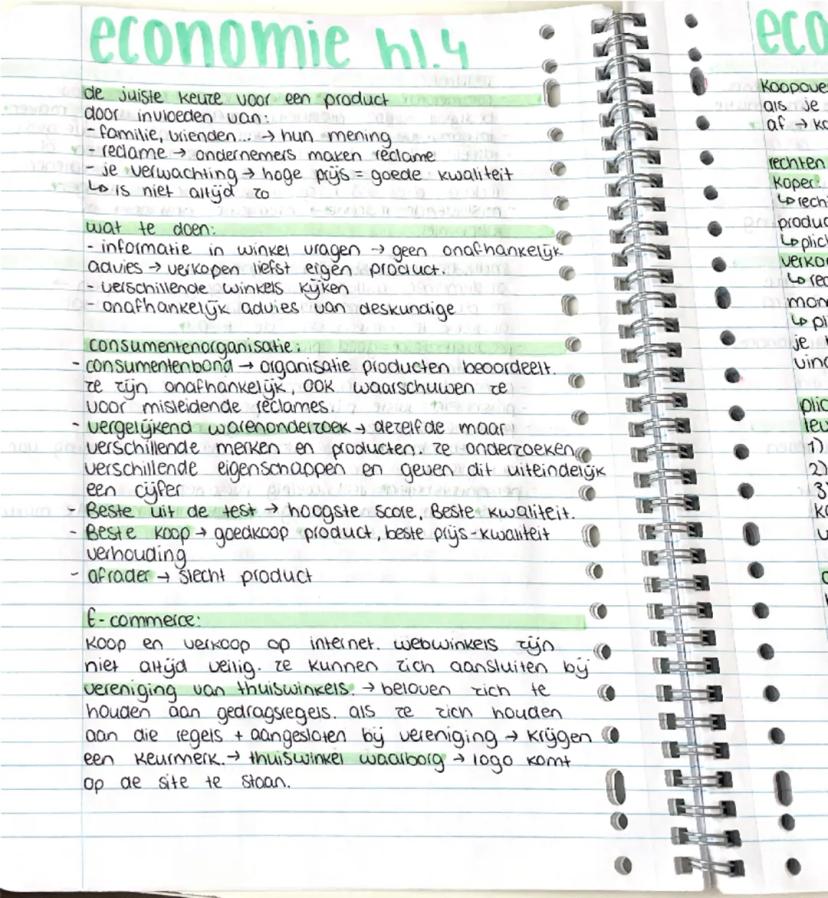 economie hl.4
de juiste keuze voor een product
door invloeden van:
- familie, vrienden... → hun mening
- reclame → ondernemers maken reclame
- je verwachting → hoge prijs = goede kwaliteit
↳ is niet altijd zo
wat te doen:
- informatie in winkel vragen → geen onafhankelijk
advies → verkopen liefst eigen product.
- verschillende winkels kijken
- onafhankelijk advies van deskundige
consumentenorganisatie:
- consumentenbond → organisatie producten beoordeelt.
ze zijn onafhankelijk, ook waarschuwen ze
voor misleidende reclames.
- vergelijkend warenonderzoek → dezelfde maar
verschillende merken en producten. ze onderzoeken
verschillende eigenschappen en geven dit uiteindelijk
een cijfer
- Beste uit de test → hoogste score, Beste kwaliteit.
- Beste koop → goedkoop product, beste prijs-kwaliteit
verhouding
- afrader → slecht product
E-commerce:
koop en verkoop op internet. webwinkels zijn
niet altijd veilig. ze kunnen zich aansluiten bij
vereniging van thuiswinkels. → beloven zich te
houden aan gedragsregels. als ze zich houden
aan die regels + aangesloten bij vereniging → krijgen
een keurmerk. → thuiswinkel waarborg → logo komt
op de site te staan.
eco
koopove
als je
af → ko
rechten
koper:
↳ rech
produc
↳ plic
verko
↳ rec
mon
↳ pl
je
vind
plic
leu
1)
2)
3)